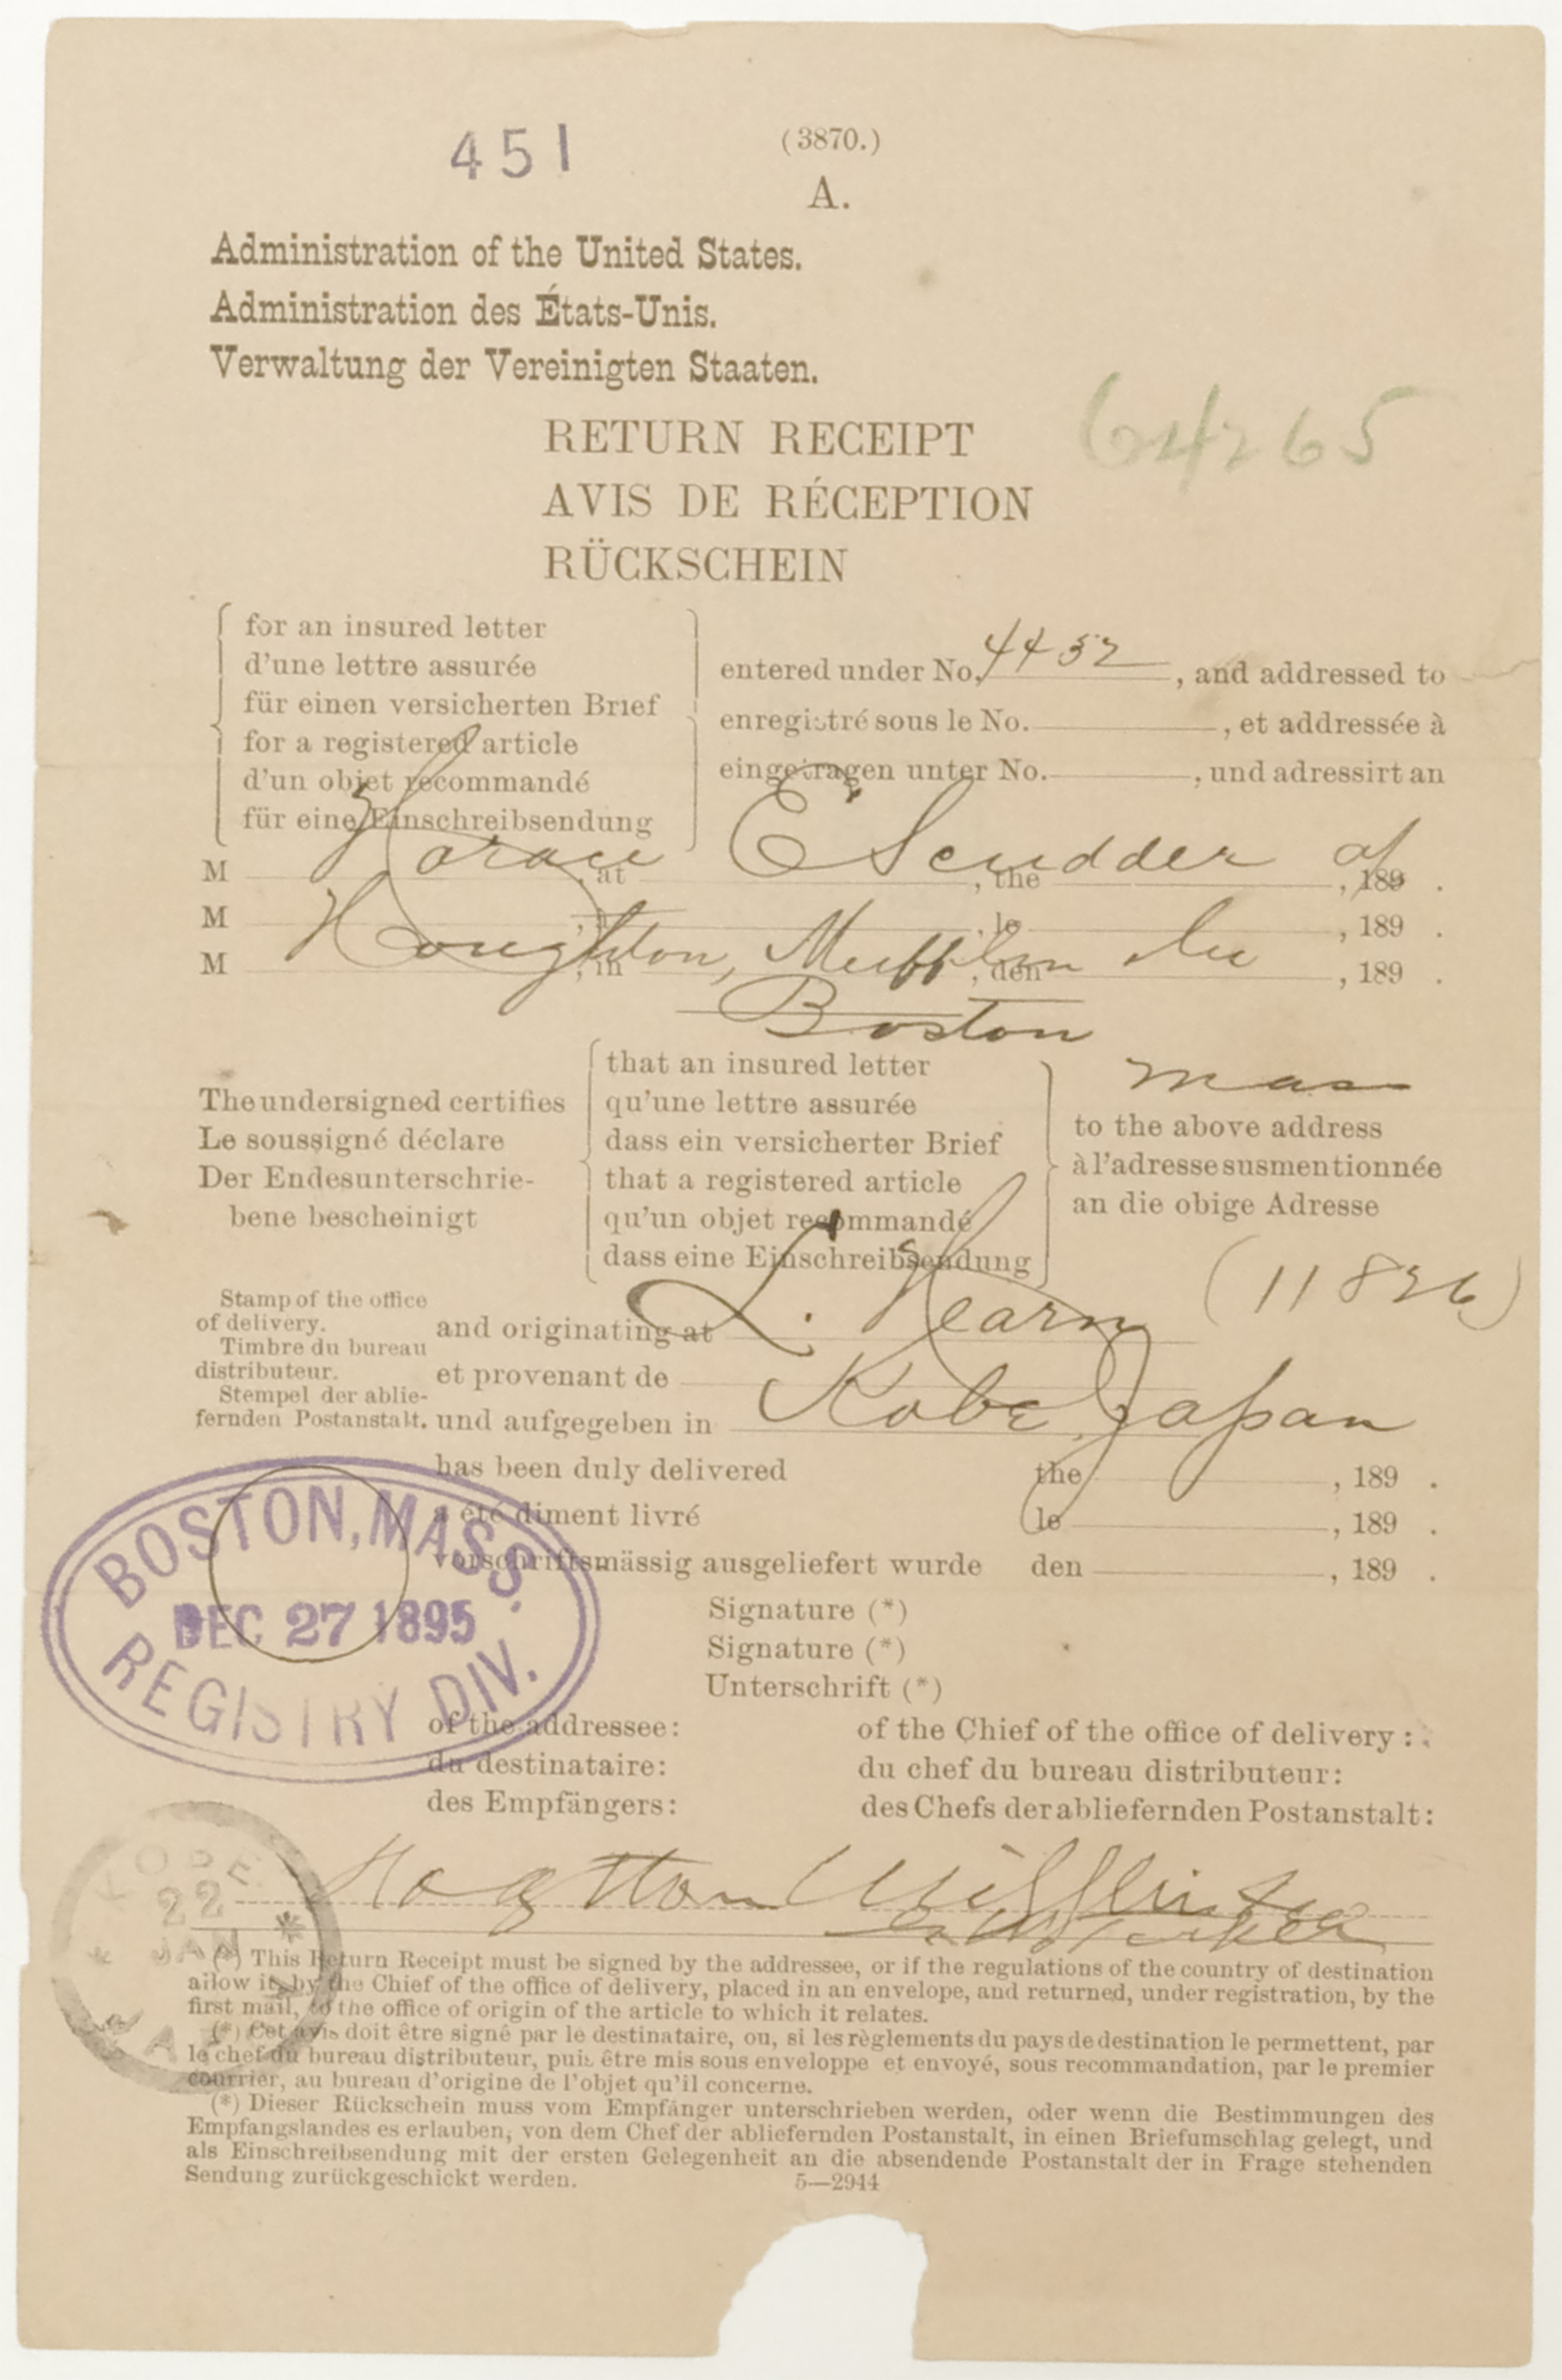 451
(3870.)
A.
Administration of the United States.
Administration des États-Unis.
Verwaltung der Vereinigten Staaten.
64265
RETURN RECEIPT
AVIS DE RÉCEPTION
RÜCKSCHEIN
for an insured letter
d'une lettre assurée
für einen versicherten Brief
for a registered article
d'un objet recommandé
für eine Einschreibsendung
entered under No. 4432, and addressed to
enregistré sous le No. , et addressée à
eingetragen unter No. , und adressirt an
Horace E Scudder of
M , at , the , 189 .
M , à , le , 189 .
Houghton, Mifflin
M , in , den , 189 .
Boston
Mass
The undersigned certifies
Le soussigné déclare
Der Endesunterschrie-
bene bescheinigt
that an insured letter
qu'une lettre assurée
dass ein versicherter Brief
that a registered article
qu'un objet recommandé
dass eine Einschreibsendung
to the above address
à l'adresse susmentionnée
an die obige Adresse
(11826)
Stamp of the office
of delivery.
Timbre du bureau
distributeur.
Stempel der ablie-
fernden Postanstalt.
and originating at L. Hearn
et provenant de
und aufgegeben in Kobe, Japan
has been duly delivered the , 189 .
a été dûment livré le , 189 .
vorschriftsmässig ausgeliefert wurde den , 189 .
BOSTON, MASS.
DEC 27 1895
REGISTRY DIV.
Signature (*)
Signature (*)
Unterschrift (*)
of the addressee:
du destinataire:
des Empfängers:
of the Chief of the office of delivery:
du chef du bureau distributeur:
des Chefs der abliefernden Postanstalt:
KOBE
22
JAN
Hogtton Mifflin
(*) This Return Receipt must be signed by the addressee, or if the regulations of the country of destination
allow it, by the Chief of the office of delivery, placed in an envelope, and returned, under registration, by the
first mail, to the office of origin of the article to which it relates.
(*) Cet avis doit être signé par le destinataire, ou, si les règlements du pays de destination le permettent, par
le chef du bureau distributeur, puis être mis sous enveloppe et envoyé, sous recommandation, par le premier
courrier, au bureau d'origine de l'objet qu'il concerne.
(*) Dieser Rückschein muss vom Empfänger unterschrieben werden, oder wenn die Bestimmungen des
Empfangslandes es erlauben, von dem Chef der abliefernden Postanstalt, in einen Briefumschlag gelegt, und
als Einschreibsendung mit der ersten Gelegenheit an die absendende Postanstalt der in Frage stehenden
Sendung zurückgeschickt werden.
5—2944